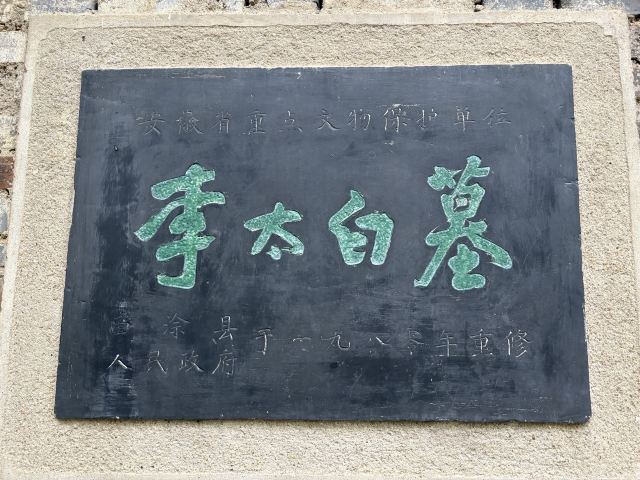 安徽省重点文物保护单位
李太白墓
当涂县
人民政府于一九八零年重修